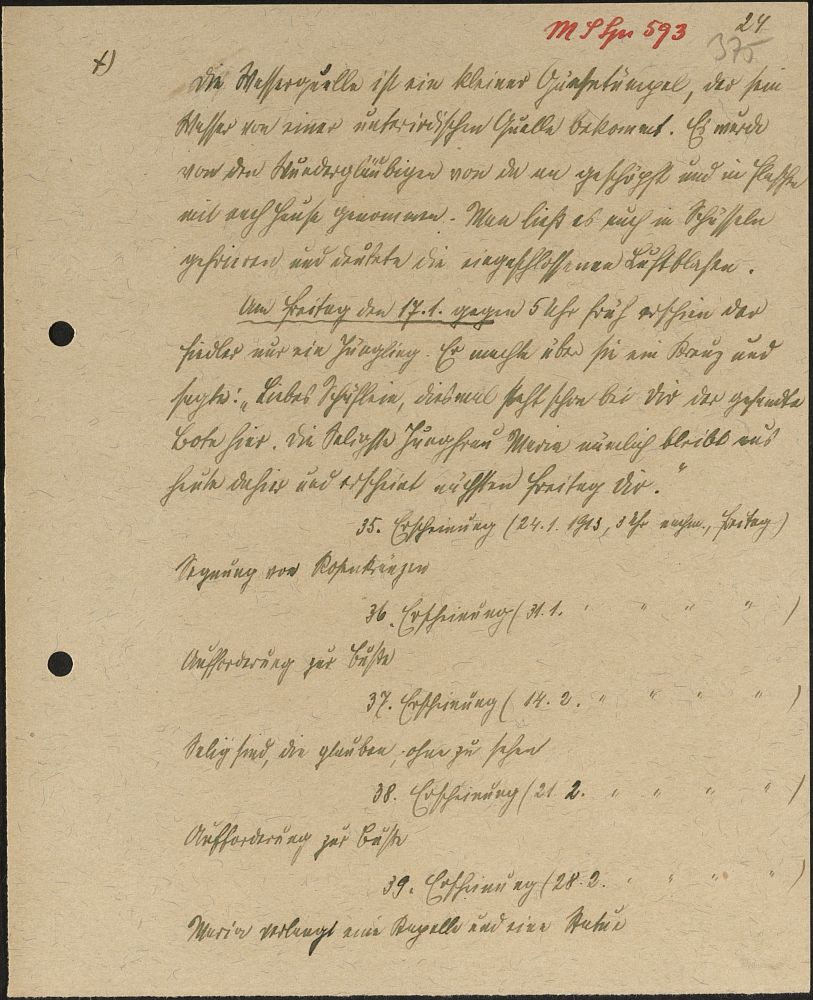 MS Spr 593 24
375
x)
Die Wasserquelle ist ein kleiner Quelltümpel, der sein
Wasser von einer unterirdischen Quelle bekommt. Es wurde
von den Wundergläubigen von da an geschöpft und in Flaschen
mit nach Hause genommen. Man ließ es auch in Schüsseln
gefrieren und deutete die eingeschlossenen Luftblasen.
Am Freitag den 17.1. gegen 5 Uhr früh erschien der
Fiedler nur ein Jüngling. Er machte über sie ein Kreuz und
sagte: „Liebes Schäflein, diesmal steht schon bei Dir der gesandte
Bote hier. Die Seligste Jungfrau Maria nämlich bleibt aus
heute dahier und erscheint nächsten Freitag Dir."
35. Erscheinung (24.1. 1913, 3 Uhr nachm., Freitag)
Segnung von Rosenkränzen
36. Erscheinung (31.1. " " " " )
Aufforderung zur Buße
37. Erscheinung (14.2. " " " " )
Selig sind, die glauben, ohne zu sehen
38. Erscheinung (21.2. " " " " )
Aufforderung zur Buße
39. Erscheinung (28.2. " " " " )
Maria verlangt eine Kapelle und eine Statue